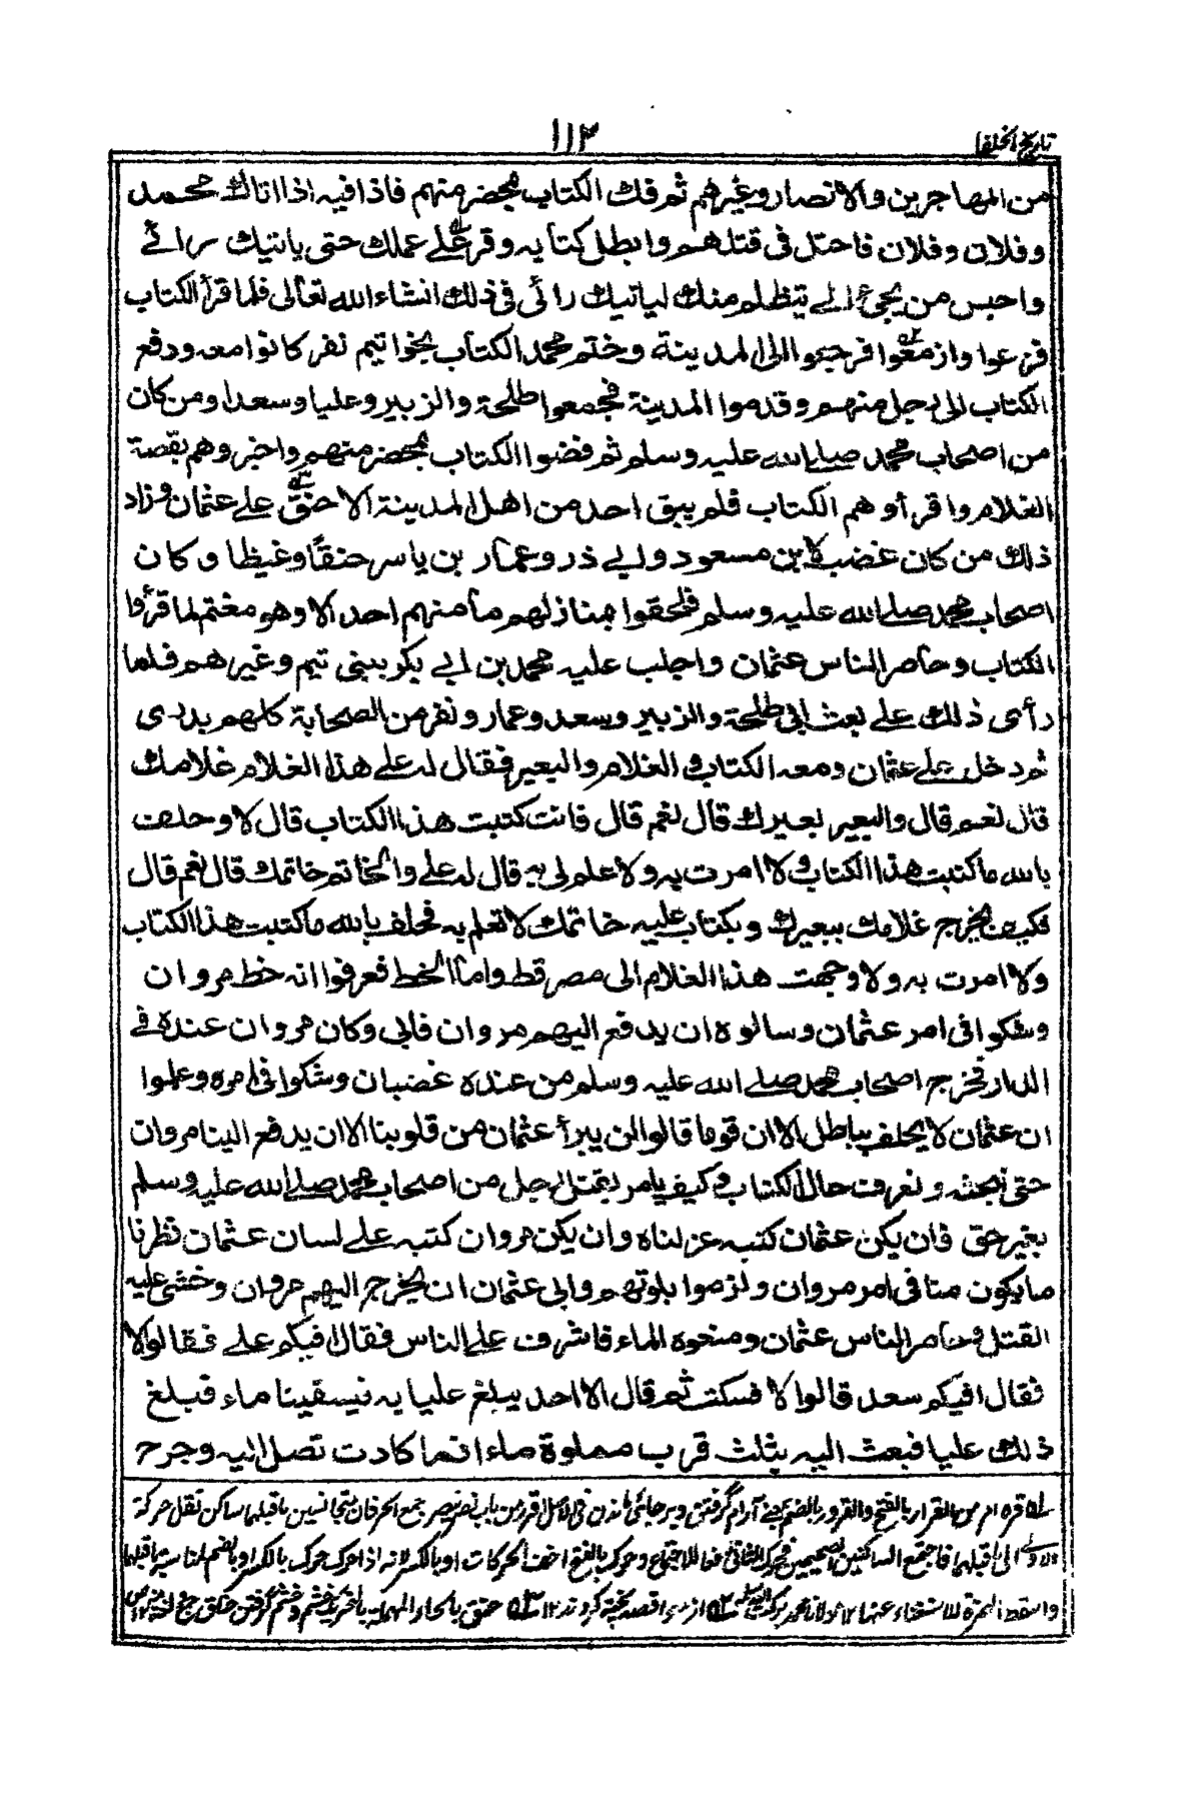 تاريخ الخلفا
١١٣
من المهاجرين والانصار وغيرهم ثم فك الكتاب بمحضر منهم فاذا فيه اذا اتاك محمد
وفلان وفلان فاحتل فى قتلهم وابطل كتابه وقر على عملك حتى ياتيك رائے
واحبس من يجئ الے يتظلم منك لياتيك رائى فى ذلك انشاء الله تعالى فلما قرأ الكتاب
فزعوا وازمعوا فرجعوا الى المدينة وختم محمد الكتاب بخواتيم نفر كانوا معه ودفع
الكتاب الى رجل منهم وقدموا المدينة فجمعوا طلحة والزبير وعليا وسعدا ومن كان
من اصحاب محمد صلے الله عليه وسلم ثم فضوا الكتاب بمحضر منهم واخبروهم بقصة
الغلام واقرأوهم الكتاب فلم يبق احد من اهل المدينة الا حنق علے عثمان وزاد
ذلك من كان غضب لابن مسعود وابے ذر وعمار بن ياسر حنقًا وغيظا وكان
اصحاب محمد صلے الله عليه وسلم فلحقوا بمنازلهم ما منهم احد الا وهو مغتم لما قرأوا
الكتاب وحاصر الناس عثمان واجلب عليه محمد بن ابے بكر ببنى تيم وغيرهم فلما
رأى ذلك علے بعث الى طلحة والزبير وسعد وعمار ونفر من الصحابة كلهم بدرى
ثم دخل علے عثمان ومعه الكتاب والغلام والبعير فقال له علے هذا الغلام غلامك
قال نعم قال والبعير بعيرك قال نعم قال فانت كتبت هذا الكتاب قال لا وحلف
بالله ما كتبت هذا الكتاب ولا امرت به ولا علم لى به قال له علے والخاتم خاتمك قال نعم قال
فكيف يخرج غلامك ببعيرك وبكتاب عليه خاتمك لا تعلم به فحلف بالله ما كتبت هذا الكتاب
ولا امرت به ولا وجهت هذا الغلام الى مصر قط واما الخط فعرفوا انه خط مروان
وشكوا فى امر عثمان وسالوه ان يدفع اليهم مروان فابى وكان مروان عنده فے
الدار فخرج اصحاب محمد صلے الله عليه وسلم من عنده غضبان وشكوا فى امره وعلموا
ان عثمان لا يحلف بباطل الا ان قوما قالوا لن يبرأ عثمان من قلوبنا الا ان يدفع الينا مروان
حتى نبحثه ونعرف حال الكتاب وكيف يامر بقتل رجل من اصحاب محمد صلے الله عليه وسلم
بغير حق فان يكن عثمان كتبه عزلناه وان يكن مروان كتبه علے لسان عثمان نظرنا
ما يكون منا فى امر مروان ولزموا بيوتهم وابى عثمان ان يخرج اليهم مروان وخشى عليه
القتل وحاصر الناس عثمان ومنعوه الماء فاشرف علے الناس فقال افيكم علے فقالوا لا
فقال افيكم سعد قالوا لا فسكت ثم قال الا احد يبلغ عليا يه فيسقينا ماء فبلغ
ذلك عليا فبعث اليه بثلث قرب مملوة ماء فما كادت تصل اليه وجرح
قره امر من القرار بالفتح والقرور بالضم بمعنے آرام گرفتن وبرجائى ماندن فى الاصل اقرر من باب نصر ينصر جمع الحرفان متجانسين ما قبلهما ساكن نقل حركة
الى ما قبلهما فاجتمع الساكنين فحرك الثانى وحرك بالفتح اخف الحركات او بالكسر لانه اذا حرك حرك بالكسر او بالضم
واسقط الهمزة للاستغناء عنها ١٢ مولانا محمد بركت قصد پخته كردند ١٢ حنق بالحاء المهملة بالتحريك خشم وخشم گرفتن